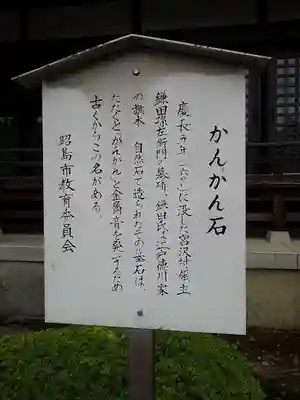 かんかん石
慶長 年(一六 )に没した宮沢村領主
鎌田 左衛門の墓碑。鎌田氏は江戸徳川家
の旗本 自然石で造られたこの墓石は、
たたくと「かんかん」と金属音を発するため
古くからこの名がある。
昭島市教育委員会